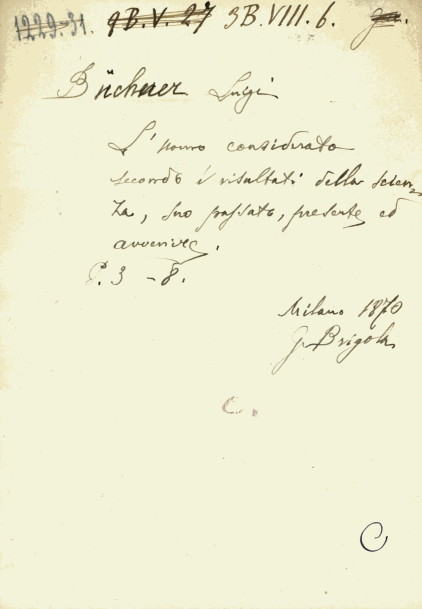 1229.31. 9B.V.27 3B.VIII.6.
Büchner Luigi
L'uomo considerato
secondo i risultati della scien-
za, suo passato, presente ed
avvenire.
P. 3 - 8.
Milano 1870
G. Brigola
C.
C